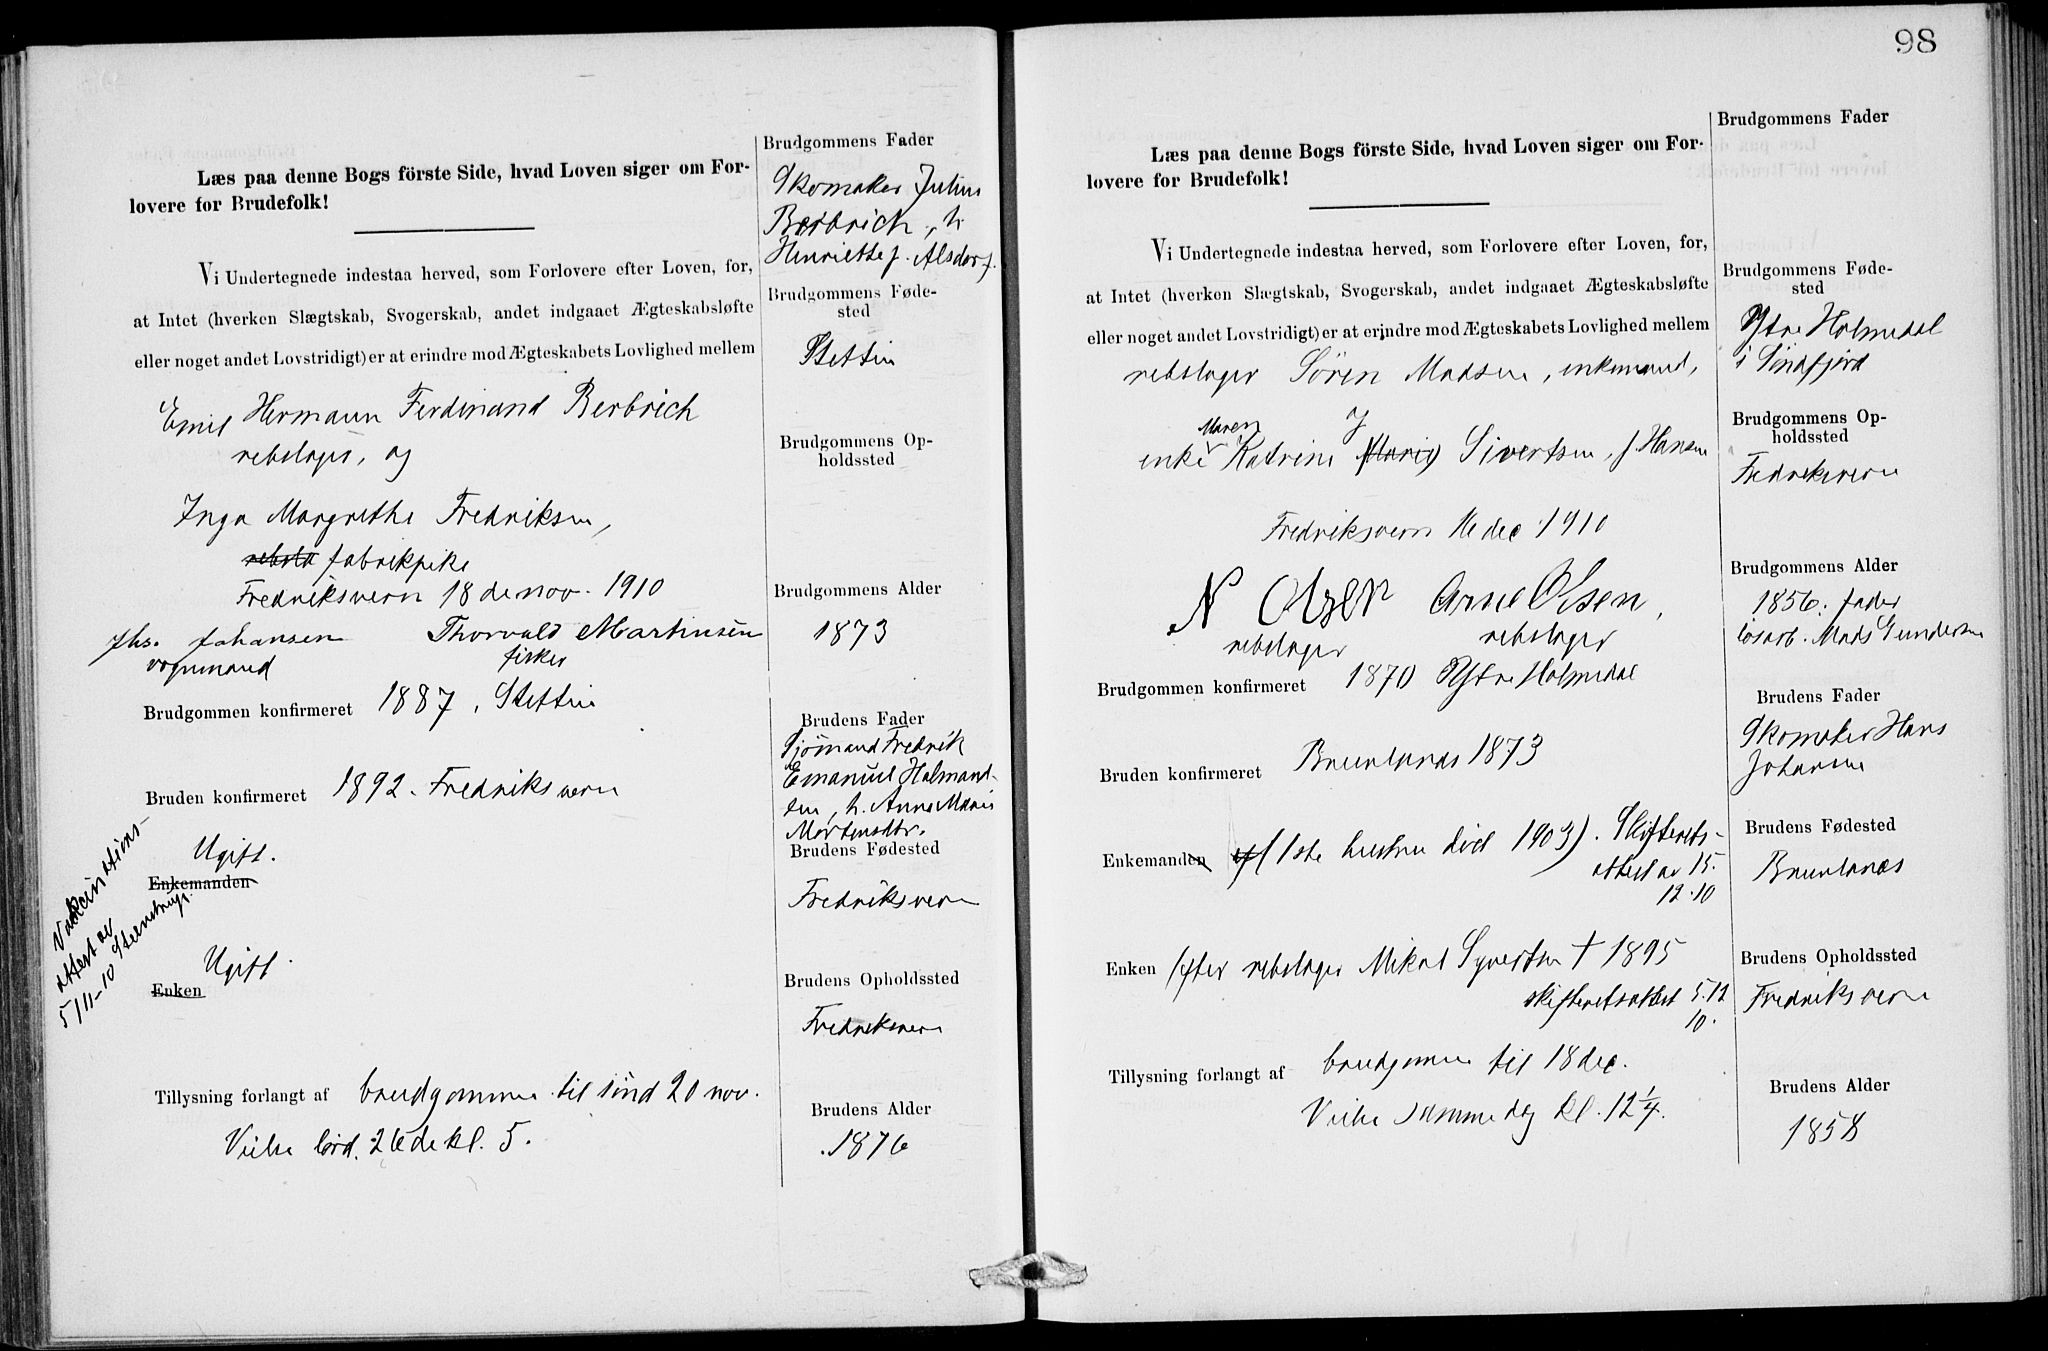 Læs paa denne Bogs förste Side, hvad Loven siger om For-
lovere for Brudefolk!
Vi Undertegnede indestaa herved, som Forlovere efter Loven, for,
at Intet (hverken Slægtskab, Svogerskab, andet indgaaet Ægteskabsløfte
eller noget andet Lovstridigt) er at erindre mod Ægteskabets Lovlighed mellem
Emil Hermann Ferdinand Berbrich
rebslager, og
Inga Margrethe Fredriksen,
rebsla fabrikpike
Fredriksvern 18de nov. 1910
Jhs. Johansen Thorvald Martinsen
vognmand fisker
Brudgommen konfirmeret 1887, Stettin
Bruden konfirmeret 1892. Fredriksvern
Ugift.
Enkemanden
Ugift.
Enken
Vakcinations-
attest av
5/11-10
Tillysning forlangt af brudgommen til sönd 20 nov.
Vielse lörd. 26de kl. 5.
Brudgommens Fader
Skomaker Julius
Berbrich, h.
Henriette f. Alsdorf.
Brudgommens Føde-
sted
Stettin
Brudgommens Op-
holdssted
Brudgommens Alder
1873
Brudens Fader
Sjömand Fredrik
Emanuel
h. Anne Marie
Mortensdtr.
Brudens Fødested
Fredriksvern
Brudens Opholdssted
Fredriksvern
Brudens Alder
1876
98
Læs paa denne Bogs förste Side, hvad Loven siger om For-
lovere for Brudefolk!
Vi Undertegnede indestaa herved, som Forlovere efter Loven, for,
at Intet (hverken Slægtskab, Svogerskab, andet indgaaet Ægteskabsløfte
eller noget andet Lovstridigt) er at erindre mod Ægteskabets Lovlighed mellem
rebslager Sören Madsen, enkemand,
Maren
enke Katrine (Marie) Sivertsen, f. Hansen
Fredriksvern 16 dec 1910
N Olsen Arne Olsen,
rebslager rebslager
Brudgommen konfirmeret 1870 Ytre Holmedal
Bruden konfirmeret Brunlanæs 1873
Enkemanden ef (1ste hustru död 1903). Skifterets-
attest av 15.
12.10
Enken efter rebslager Mikal Syvertsen † 1895
skifteretsattest 5.12
10.
Tillysning forlangt af brudgommen til 18 dec.
Vielse samme dag kl. 12 1/4.
Brudgommens Fader
Brudgommens Føde-
sted
Ytre Holmedal
i Söndfjord
Brudgommens Op-
holdssted
Fredriksvern
Brudgommens Alder
1856. fader
lösarb. Mads Gundersen
Brudens Fader
Skomaker Hans
Johansen
Brudens Fødested
Brunlanæs
Brudens Opholdssted
Fredriksvern
Brudens Alder
1858